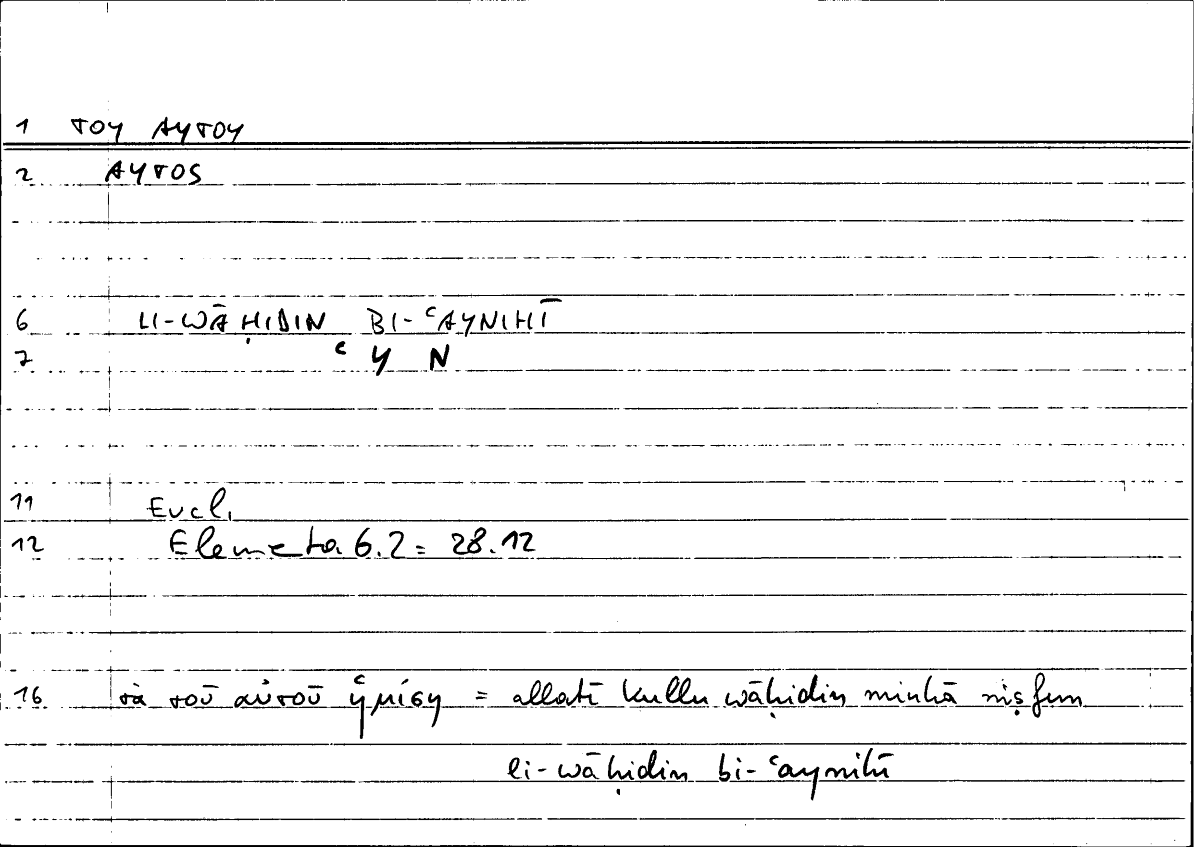 1 ΤΟΥ ΑΥΤΟΥ
2 ΑΥΤΟΣ
6 LI-WĀḤIDIN BI-ʿAYNIHĪ
7 ʿ Y N
11 Eucl.
12 Elementa 6.2 = 28.12
16 τὰ τοῦ αὐτοῦ ἡμίση = allatī kullu wāḥidin minhā niṣfun
li-wāḥidin bi-ʿaynihī